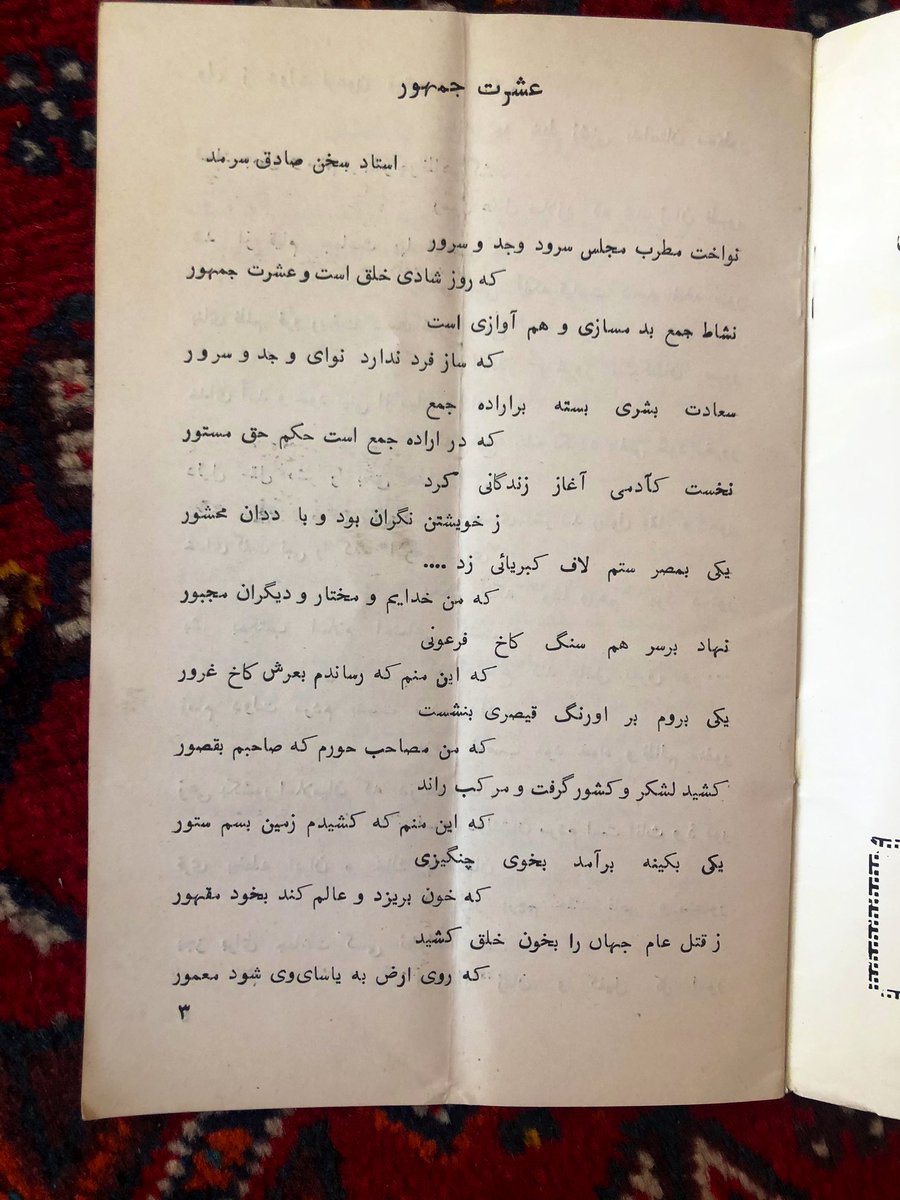 عشرت جمهور
استاد سخن صادق سرمد
نواخت مطرب مجلس سرود وجد و سرور
که روز شادی خلق است و عشرت جمهور
نشاط جمع بد مسازی و هم آوازی است
که ساز فرد ندارد نوای وجد و سرور
سعادت بشری بسته براراده جمع
که در اراده جمع است حکم حق مستور
نخست کآدمی آغاز زندگانی کرد
ز خویشتن نگران بود و با ددان محشور
یکی بمصر ستم لاف کبریائی زد ....
که من خدایم و مختار و دیگران مجبور
نهاد برسر هم سنگ کاخ فرعونی
که این منم که رساندم بعرش کاخ غرور
یکی بروم بر اورنگ قیصری بنشست
که من مصاحب حورم که صاحبم بقصور
کشید لشکر و کشور گرفت و مرکب راند
که این منم که کشیدم زمین بسم ستور
یکی بکینه برآمد بخوی چنگیزی
که خون بریزد و عالم کند بخود مقهور
ز قتل عام جهان را بخون خلق کشید
که روی ارض به یاسای‌وی شود معمور
۳